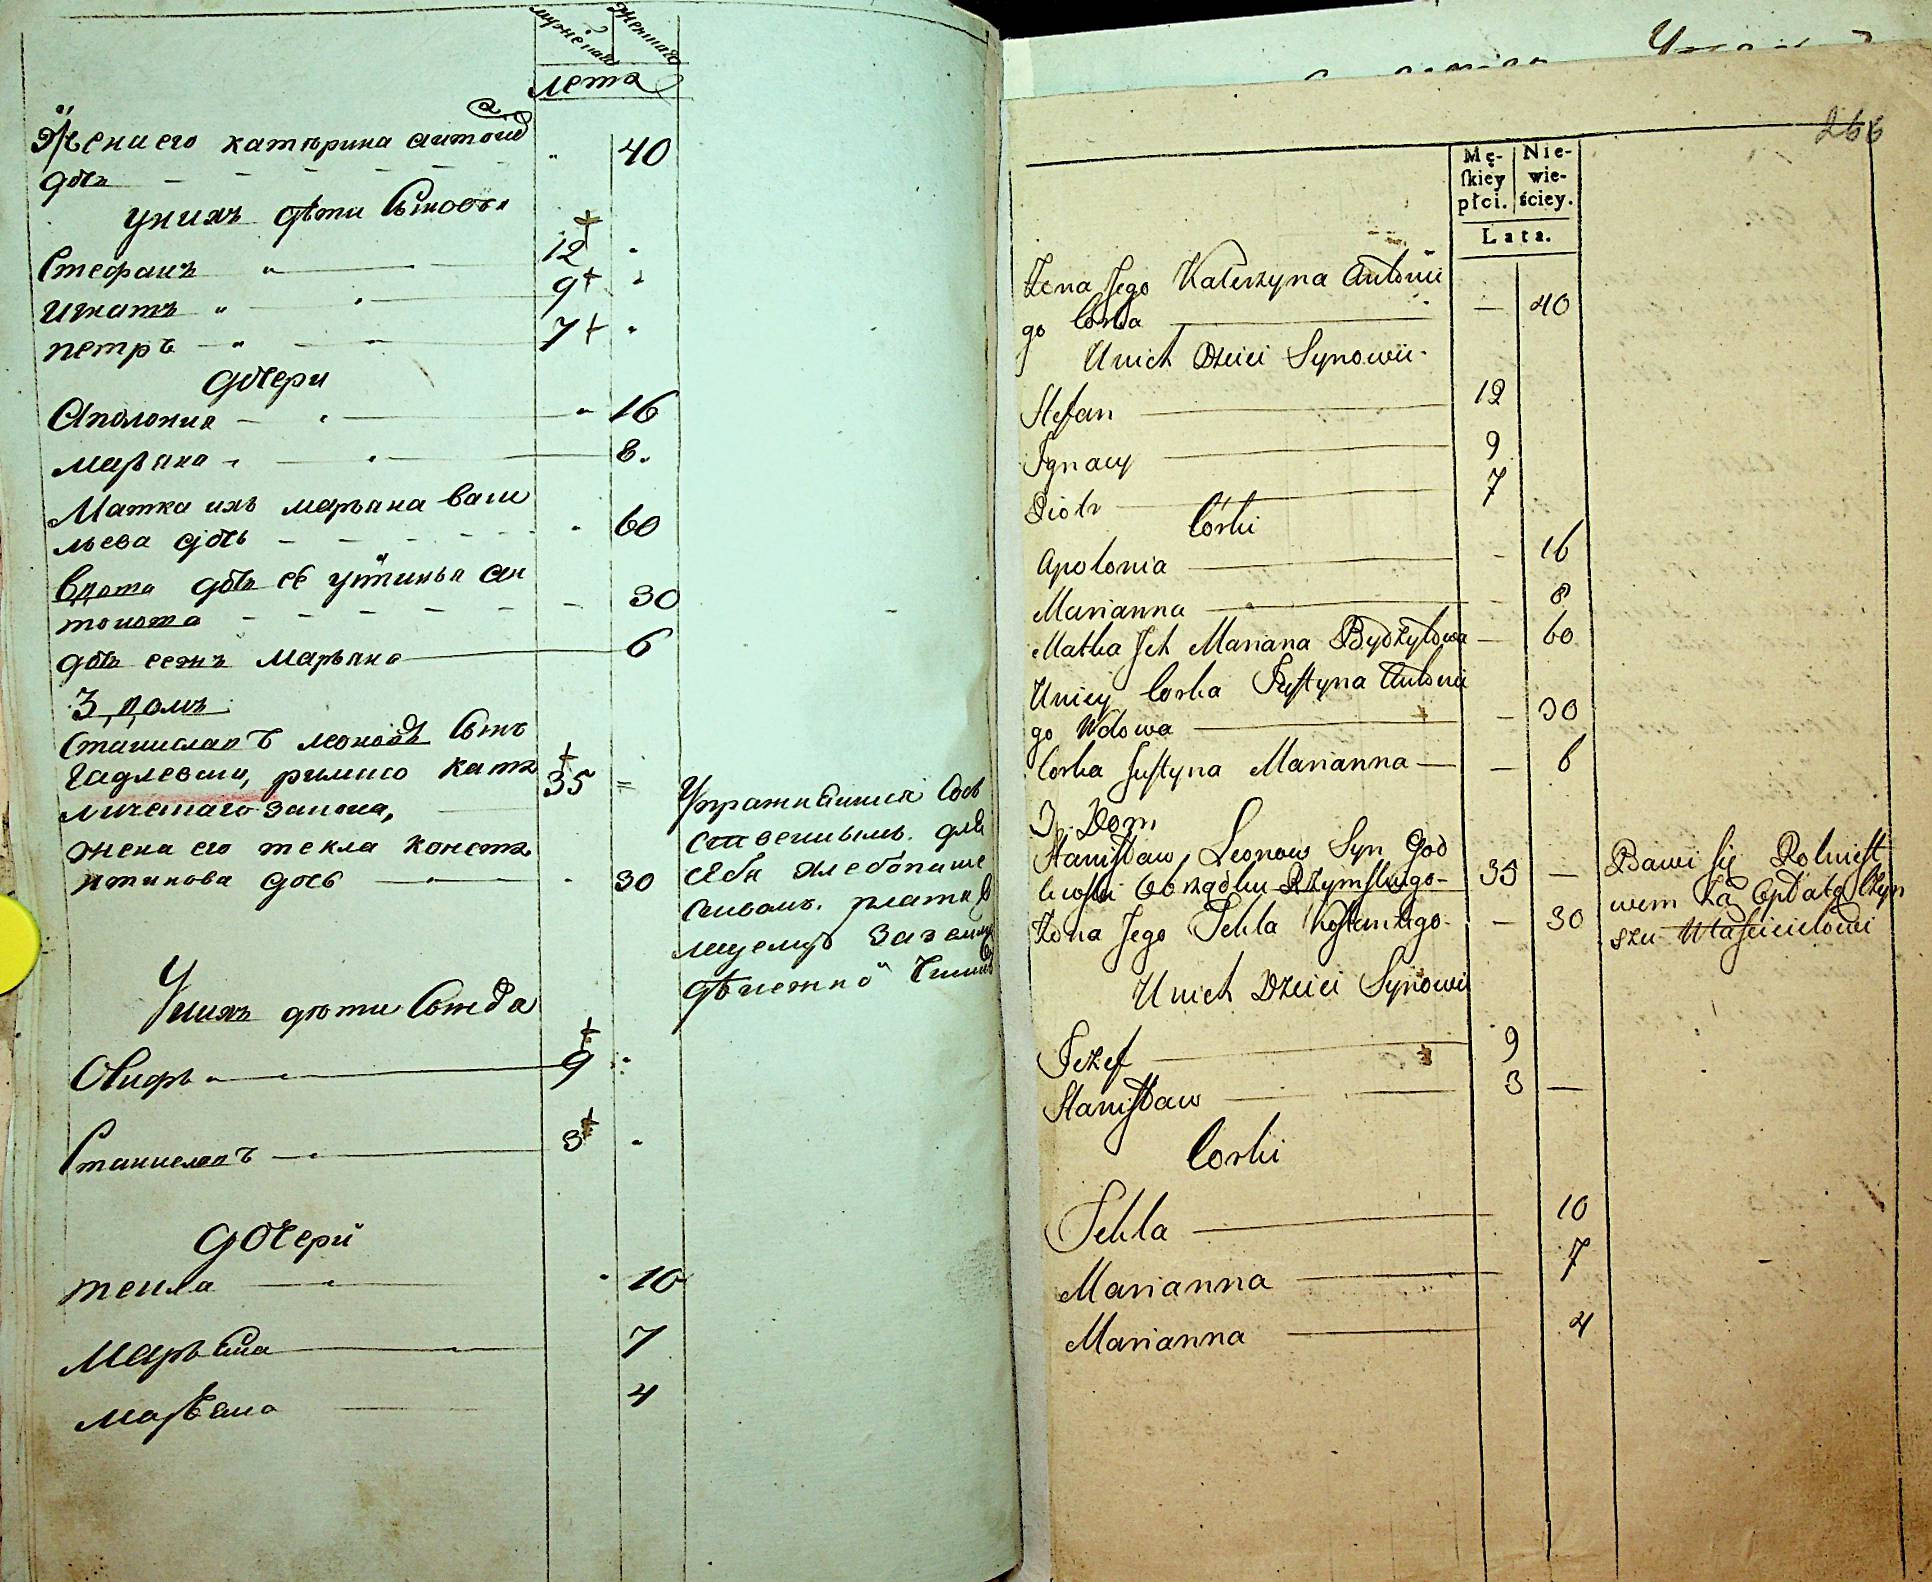 мужескаго женскаго
лета
Жена его катерина антонова
дочь 40
у них дѣти Сыновья
Стефанъ 12
игнатъ 9
петръ 7
дочери
Аполония 16
марьяна 8.
Матка ихъ марьяна васи
льева дочь 60
вдова дочь ее устинья ан
тонова 30
дочь еежъ марьяна 6
3, домъ
Станиславъ леоновъ Сынъ
римско като 35
лическаго закона,
жена его текла конста
нтинова дочь 30
Упражняются Соб
ственнымъ. для
себя хлебопаше
ствомъ. платя в
денежной Чинш
У нихъ дѣти Сынова
Осифъ 9
Станиславъ 3
дочери
текла 10
Марьяна 7
марьяна 4
266
Mę- Nie-
skiey wie-
płci. ściey.
Lata.
Żona Jego Katerzyna Antonie
go Corka — 40
Unich Dzieci Synowie
Stefan 12
Ignacy 9
Piotr 7
Corki
Apolonia - 16
Marianna - 8
Matka Ich Mariana — 60
Uniey Corka Justyna Antonie
go Wdowa — 30
Corka Justyna Marianna — 6
3. Dom
Stanisław Leonow Syn God
lewski Obrządku Rzymskiego - 35 —
Żona Jego Tekla Kostantego - — 30
Bawi się Rolnict
wem Za Opłatą Czyn
szu Właścicielowi
Unich Dzieci Synowie
Jozef 9
Stanisław 3 —
Corki
Tekla 10
Marianna 7
Marianna 4